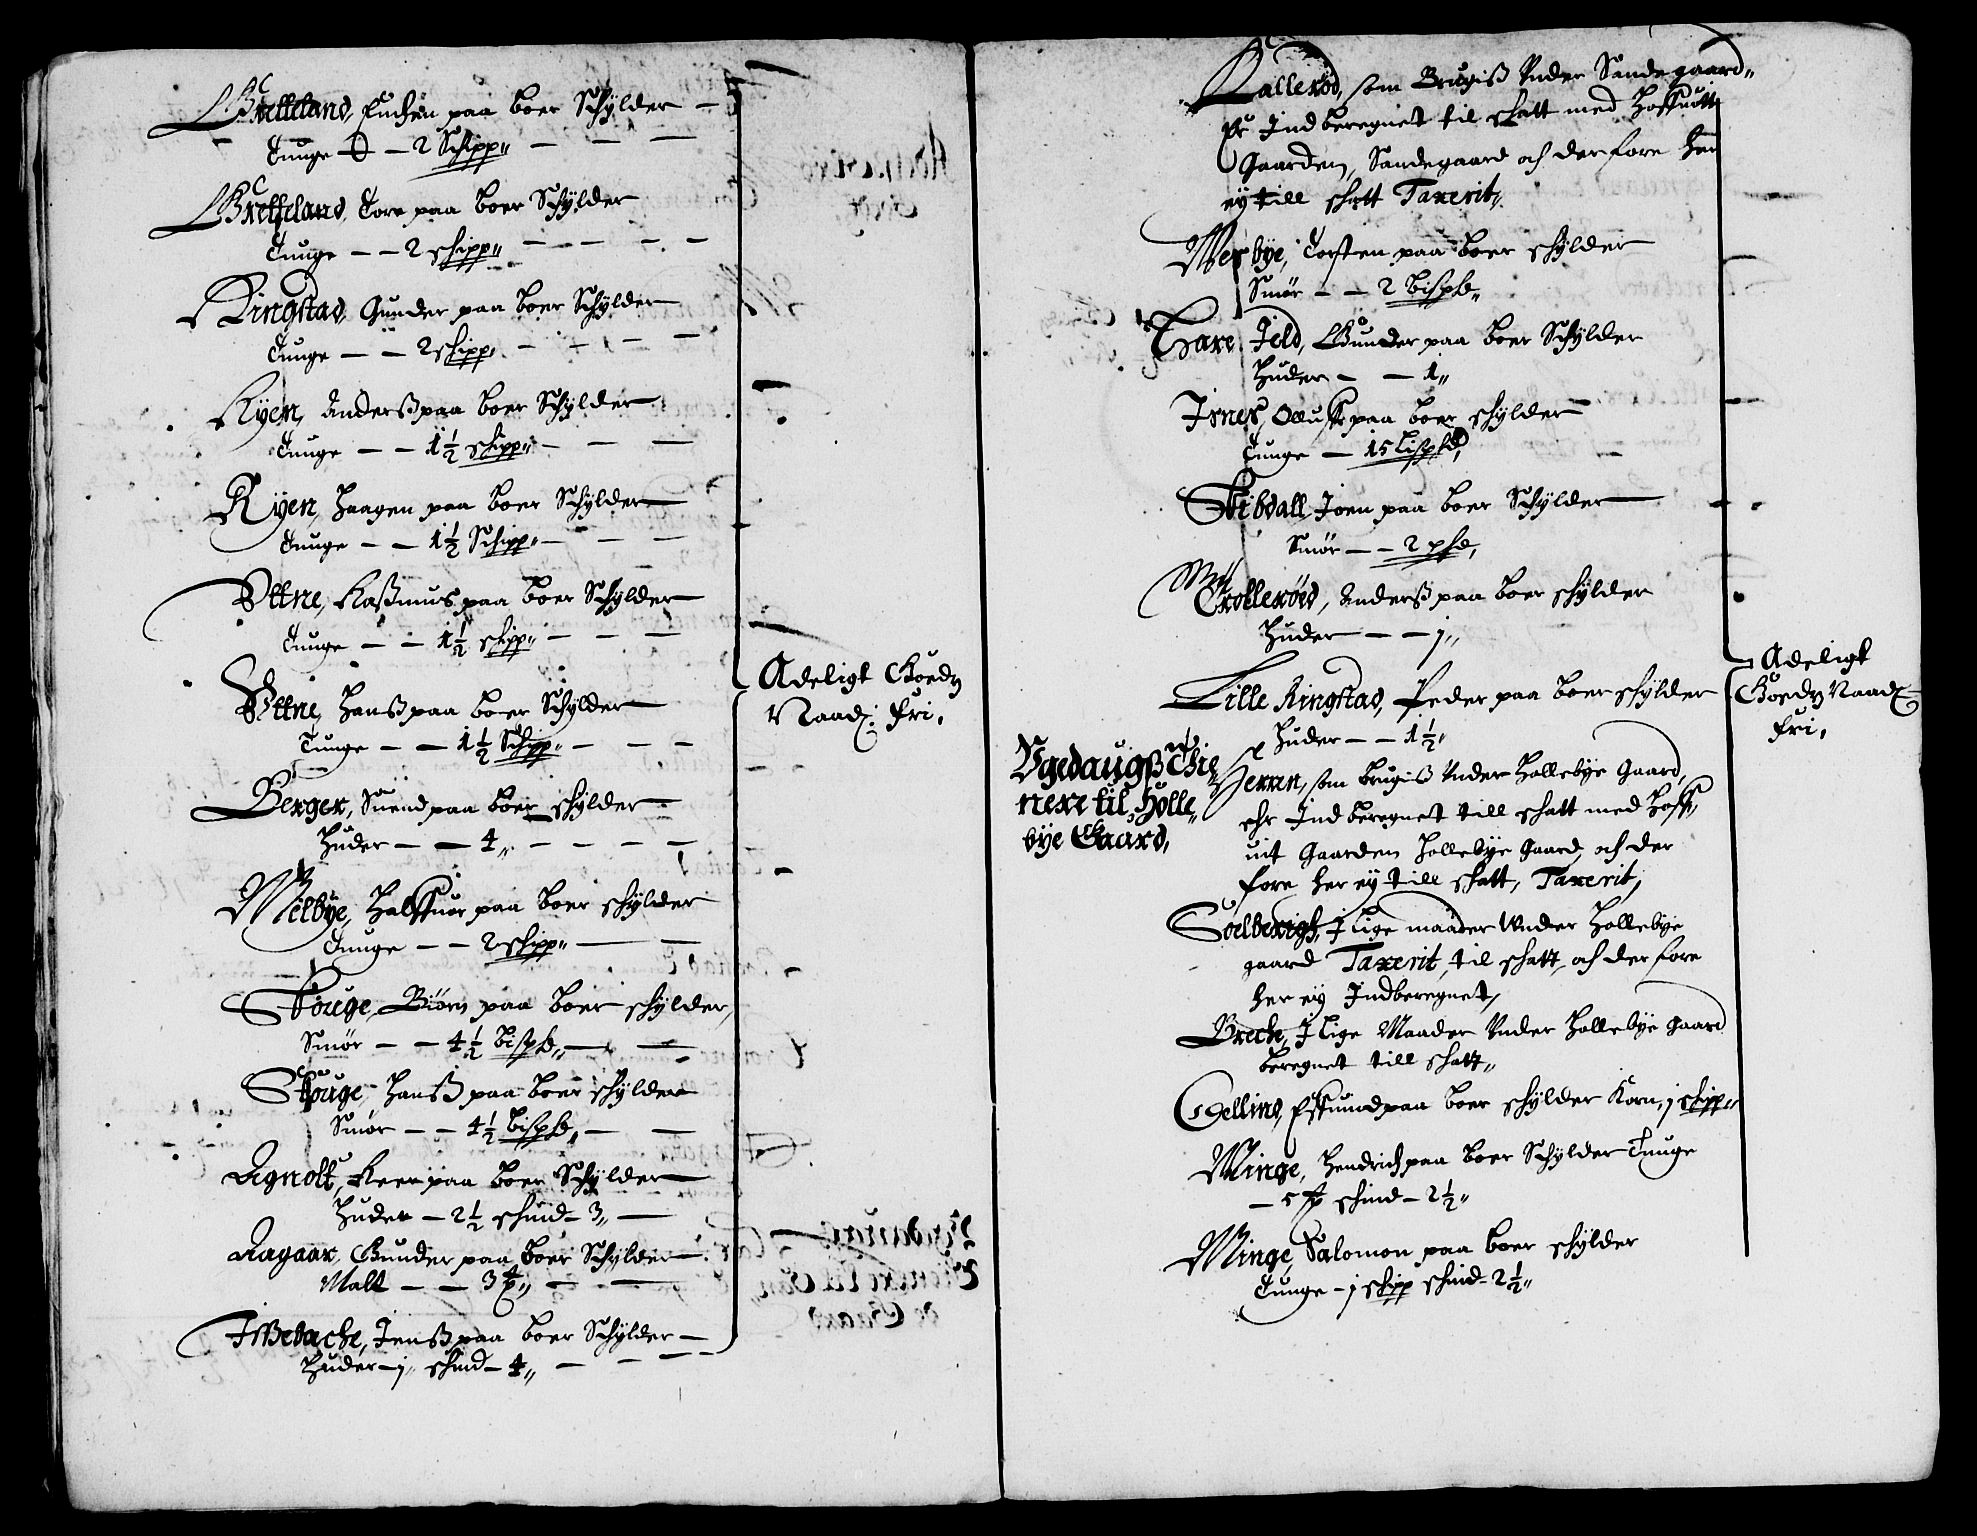 Grefseland, Euchen paa boer Schÿlder
Tunge 2 Schipp
Gretteland, Tore paa boer Schÿlder
Tunge – – 2 schipp
Ringstad, Gunder paa boer Schÿlder
Tunge – – 2 schipp
Ryen, Anderß paa boer Schÿlder
Tunge – – 1½ schipp
Ryen, Haagen paa boer Schÿlder
Tunge – – 1½ Schipp
Vttne, Raßmus paa boer Schÿlder
Tunge – – 1½ schipp
Vttne, Hanß paa boer Schÿlder
Tunge – – 1½ Schipp
Berger, Suend paa boer schÿlder
Huder – – 4
Melbye, Halffuor paa boer schÿlder
Tunge – – 2 schipp
Skouge, Biørn paa boer schÿlder,
Smør – – 4½ Bispb
Skouge, Hanß paa boer schÿlder
Smør – – 4½ Bispb
Agnolt, Reer paa boer Schÿlder
Huder – 2½ schind – 3
Aagaar, Gunder paa boer Schÿlder
Malt – – 3
Jßebache, Jenß paa boer Schÿlder –
Huder – j schind – 4
Adeligt Goedz
Naad: fri,
Kallerød, som Brugiß Vnder Sandegaard
Er Indberegnet til schatt med Hoffuitt
Gaarden, Sandegaard och der fore her
eÿ till schatt Taxerit,
Merbye, Torsten paa boer schÿlder
Smør – – 2 Bispb
Hare Jeld, Gunder paa boer Schÿlder
Huder – – 1
Isnes, Oluff paa boer schÿlder
Tunge – 15 Lispd
Stibdall, Joen paa boer Schÿlder
Smør – – 2 pd,
Trollerød, Anderß paa boer schÿlder
Huder – – j
Lille Ringstad, Peder paa boer schÿlder
Huder – – 1½
Adeligt
Goedz Naad:
fri,
Vgedaugß Thie
nere til Holle
bÿe Gaard,
Herren, som brugiß Vnder Hollebÿe Gaard,
ehr Indberegnet till schatt med Hoff
uit Gaarden Hollebÿe Gaard, och der
fore her eÿ till schatt, Taxerit,
Soelberigh, I lige maader Vnder Hollebÿe
gaard Taxerit, til schatt, och der fore
her eÿ Indberegnet,
Breche, I lige Maader Vnder Hollebÿe Gaard
beregnet till schatt
Gellind, Esmund paa boer schÿlder Korn, j schipp
Minge, Hendrich paa boer Schÿlder Tunge
– 5 schind – 2½
Minge, Salomon paa boer schÿlder
Tunge – j schipp schind – 2½